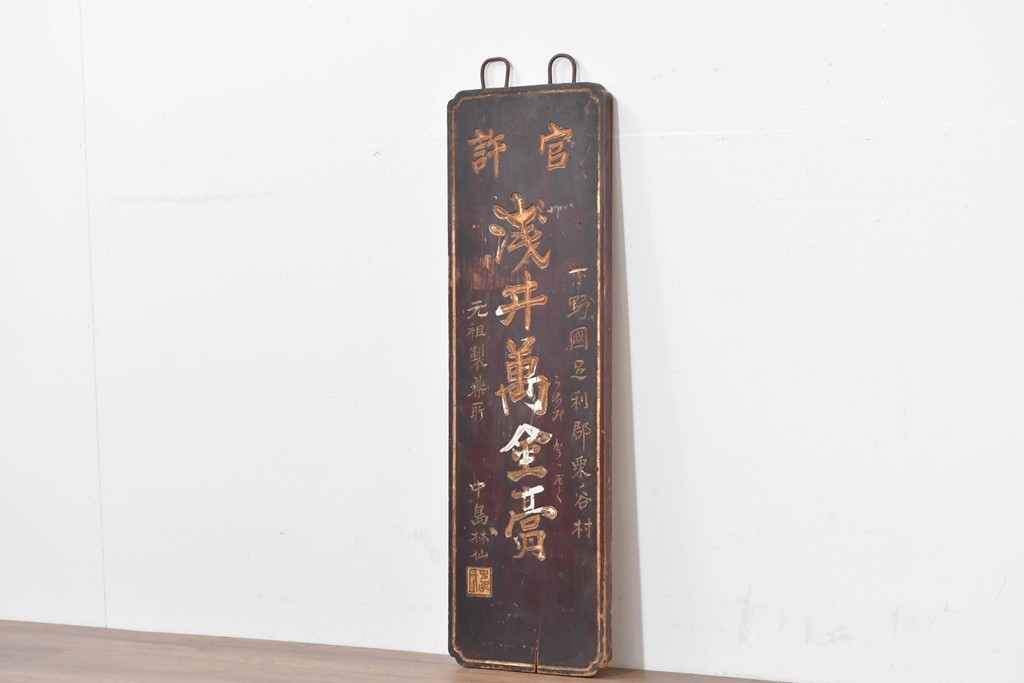 官許
下野國足利郡粟谷村
浅井萬金膏
元祖製藥所 中島林仙